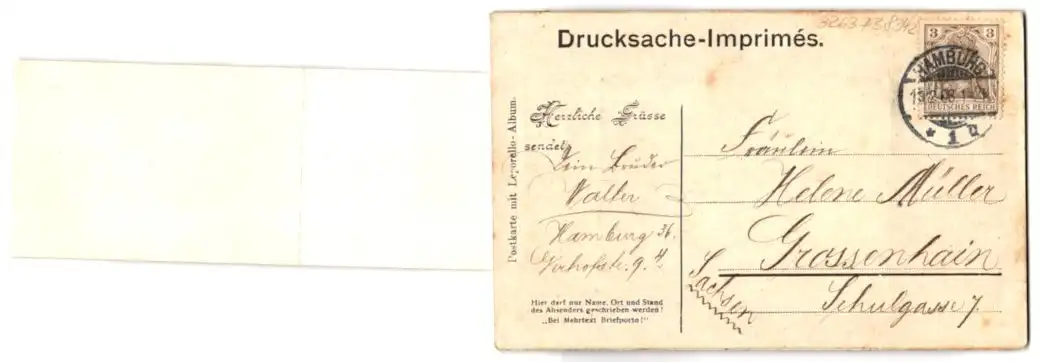 3263738342
Drucksache-Imprimés.
3 3
HAMBURG
DEUTSCHES REICH
* 1 q
Postkarte mit Leporello-Album.
Herzliche Grüsse
sendet
Dein Bruder
Walter
Hamburg 36.
9. 4
Hier darf nur Name, Ort und Stand
des Absenders geschrieben werden!
„Bei Mehrtext Briefporto!"
Fräulein
Helene Müller
Grossenhain
Sachsen
Schulgasse 7